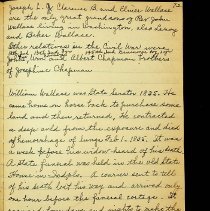 Joseph L. J. Clarence B. and Elnice Wallace
are the only great grandsons of Rev. John
Wallace living in Washington, also Leroy
and Baker Wallace.
Other relatives in the Civil War were
John, Wm and Albert Chapman brothers
of Josephine Chapman
William Wallace was State Senator 1835. He
came home on horse back to purchase some
land and then returned, He contracted
a deep cold from the exposure and died
of hemorrhage of lungs Feb 1 - 1835. It was
a week before his widow heard of his death
A State funeral was held in the old State
House in A courier sent to tell
of his death lost his way and arrived only
one hour before the funeral cortege. It